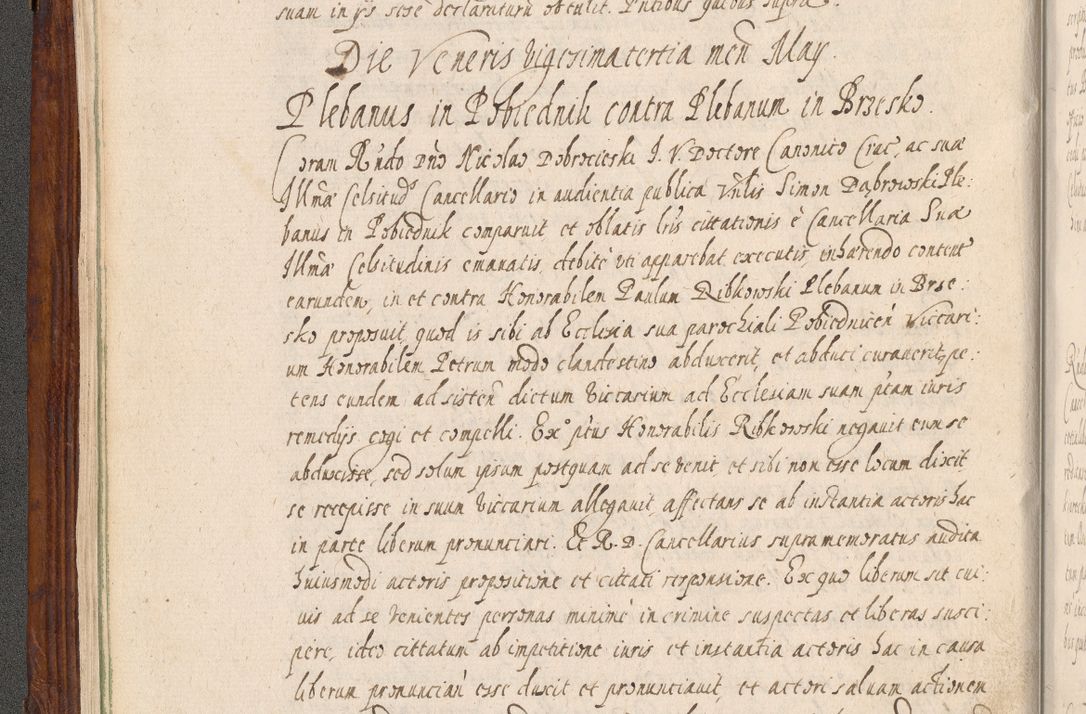 suam in ijs sese declaraturu obtulit. Pntibus quibus supra
Die Veneris vigesima tertia men May.
Plebanus in Pobiednik contra Plebanum in Brzesko.
Coram Rndo Dno Nicolao Dobrocieski I. V. Doctore Canonico Crac, ac suæ
Illmæ Celsitud Cancellario in audientia publica Vnlis Simon Dąbrowski Ple:
banus in Pobiednik comparuit et oblatis lris cittationis è Cancellaria Suæ
Illmæ Celsitudinis emanatis, debitè vti apparebat executis, inhærendo content
earundem, in et contra Honorabilem Paulum Ribkowski Plebanum in Brze:
sko proposuit, quod is sibi ab Ecclesia sua parochiali Pobiednicen Viccari:
um Honorabilem Petrum modo clandestino abduxerit, et abduci curauerit, pe:
tens eundem ad sisten dictum Viccarium ad Ecclesiam suam ptam iuris
remedijs cogi et compelli. Ex° ptus Honorabilis Ribkowski negauit eum se
abduxisse, sed solum ipsum postquam ad se venit et sibi non esse locum dixit,
se recepisse in suum Viccarium allegauit, affectans se ab instantia actoris hac
in parte liberum pronunciari. Et R. D. Cancellarius supra memoratus audita
huiusmodi actoris propositione et cittati responsione. Ex quo liberum sit cui:
uis ad se venientes personas minimè in crimine suspectas et liberas susci:
pere, ideo cittatum ab impetitione iuris et instantia actoris hac in causa
liberum pronuncian esse duxit et pronunciauit, et actori saluam actionem